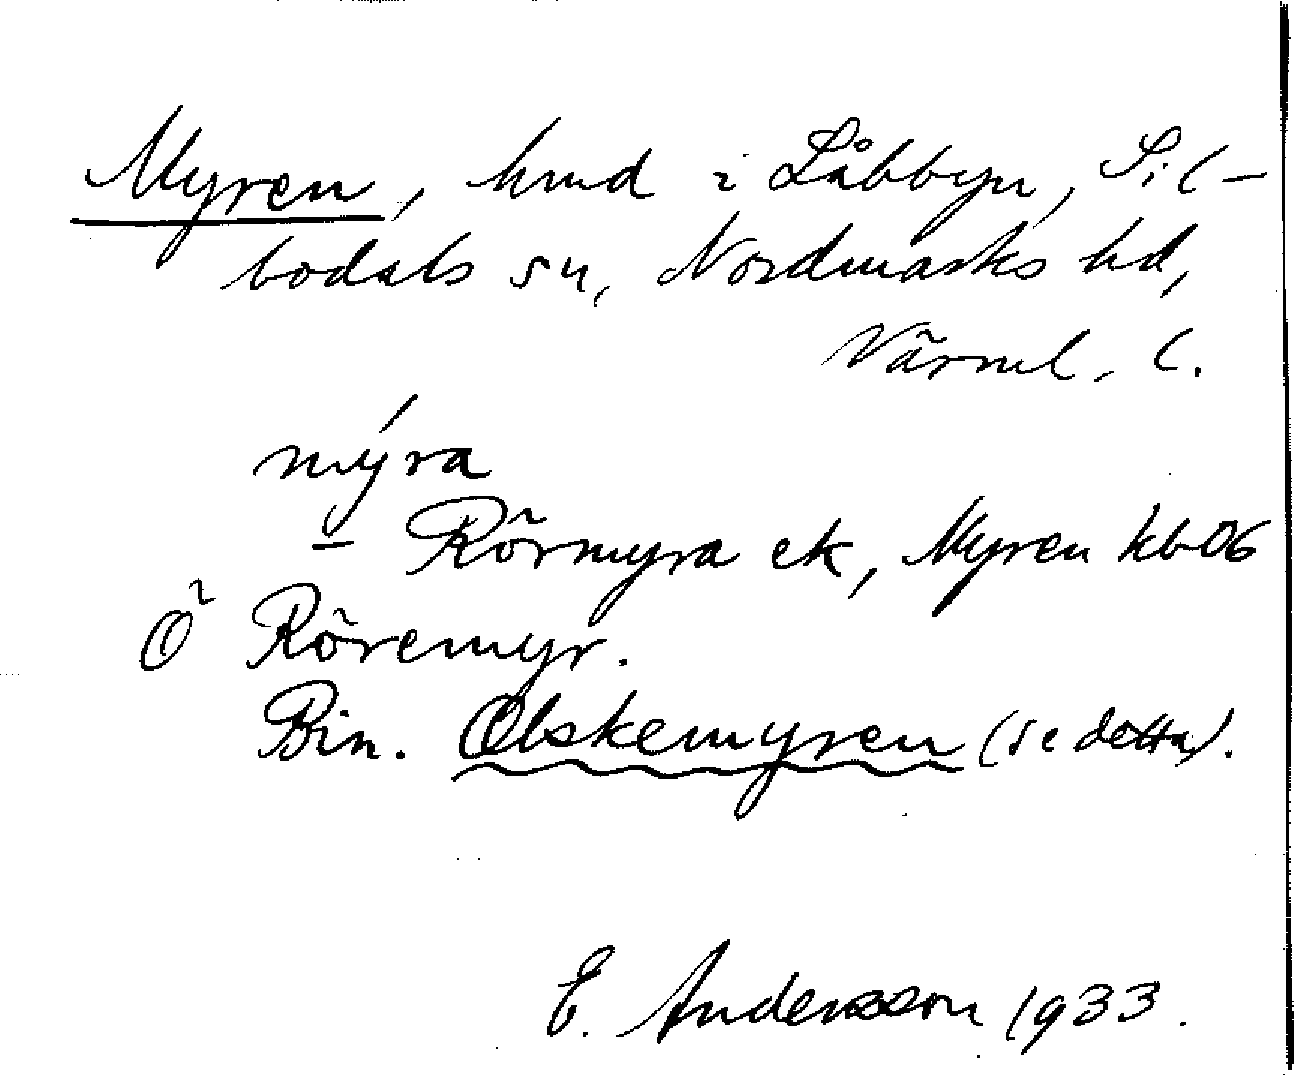 Myren, hmd i Låbbyn, Sil-
bodals sn, Nordmarks hd,
Värml. l.
mýra
– Rörmyra ek, Myren kb 06
Ö Röremyr.
Bin. Olskemyren (se detta).
E. Andersson 1933.